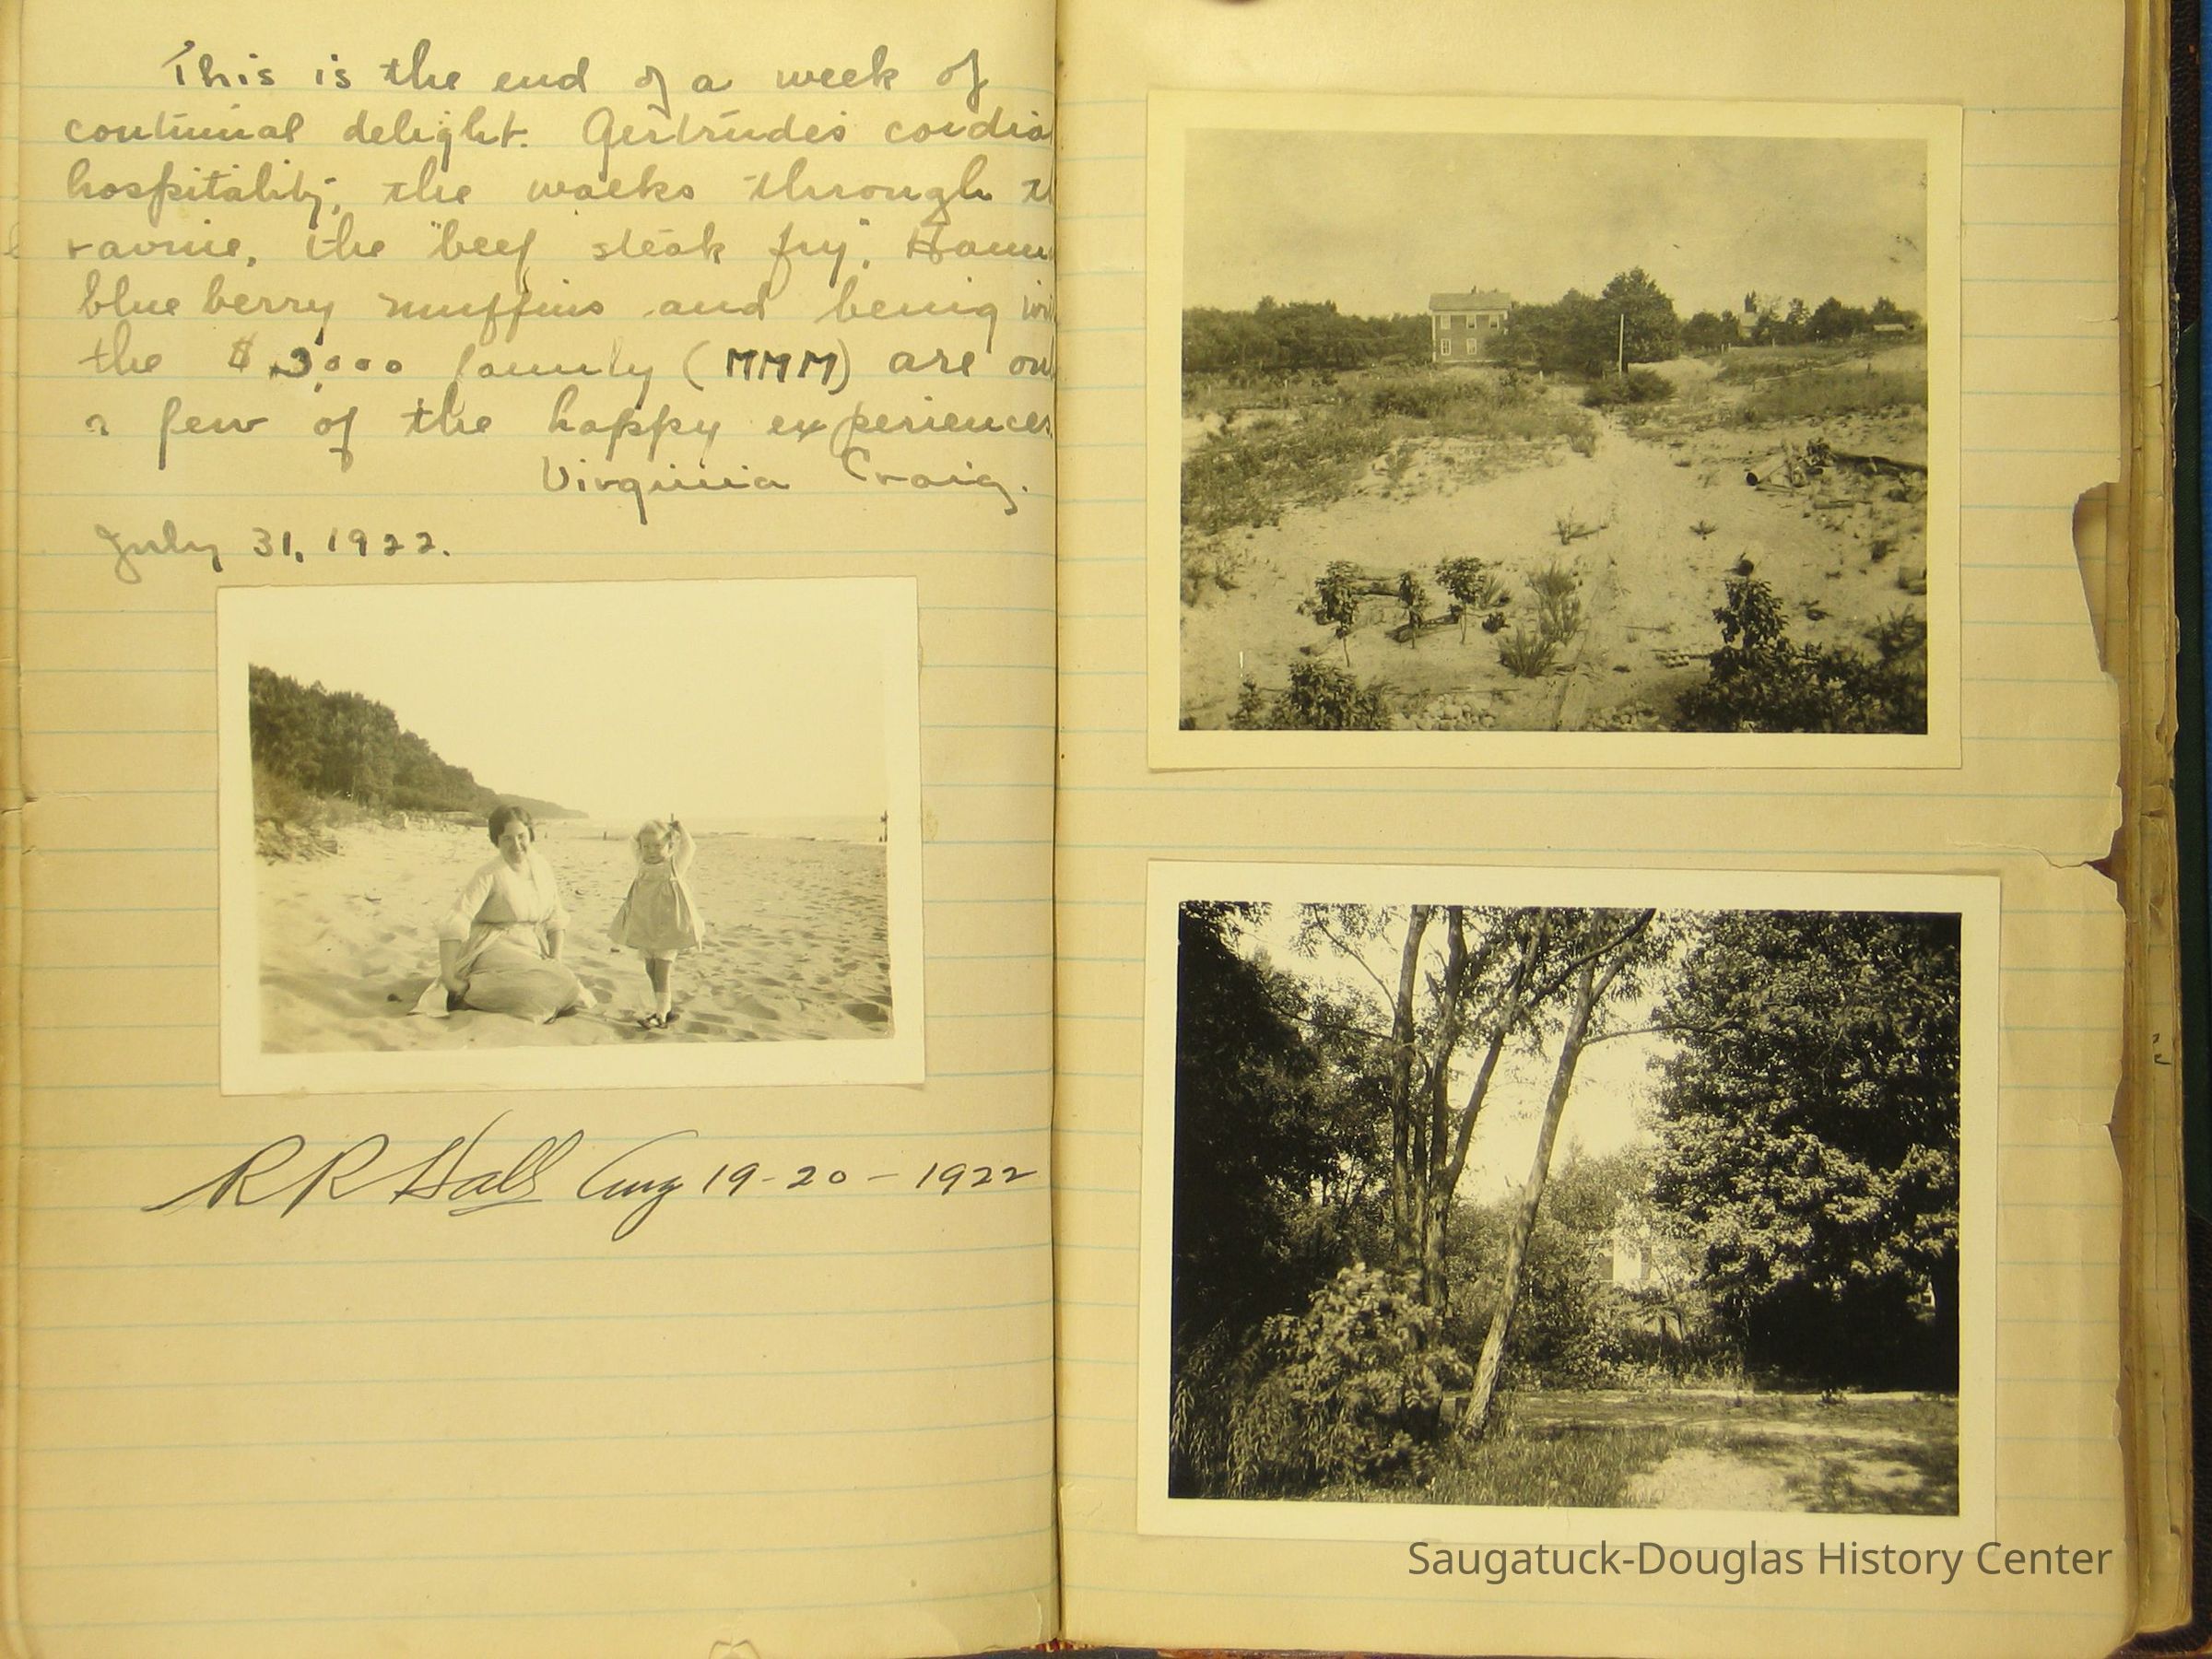 This is the end of a week of
continual delight. Gertrudes cordia
hospitality, the walks through t
ravine, the "beef steak fry",
blue berry muffins and being wi
the $3,000 family (MMM) are on
a few of the happy experiences.
Virginia Craig.
July 31, 1922.
R R Hall Aug 19-20-1922
Saugatuck-Douglas History Center